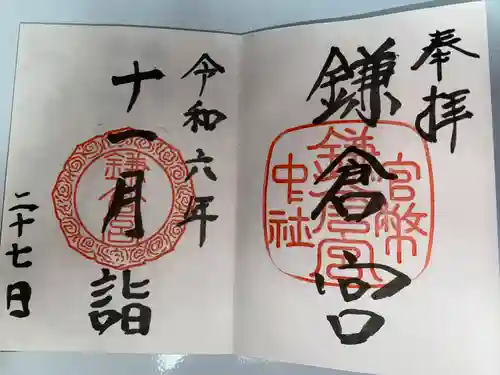 奉拝
鎌倉宮
官幣
鎌倉宮
中社
令和六年
十一月詣
鎌倉宮
二十七日